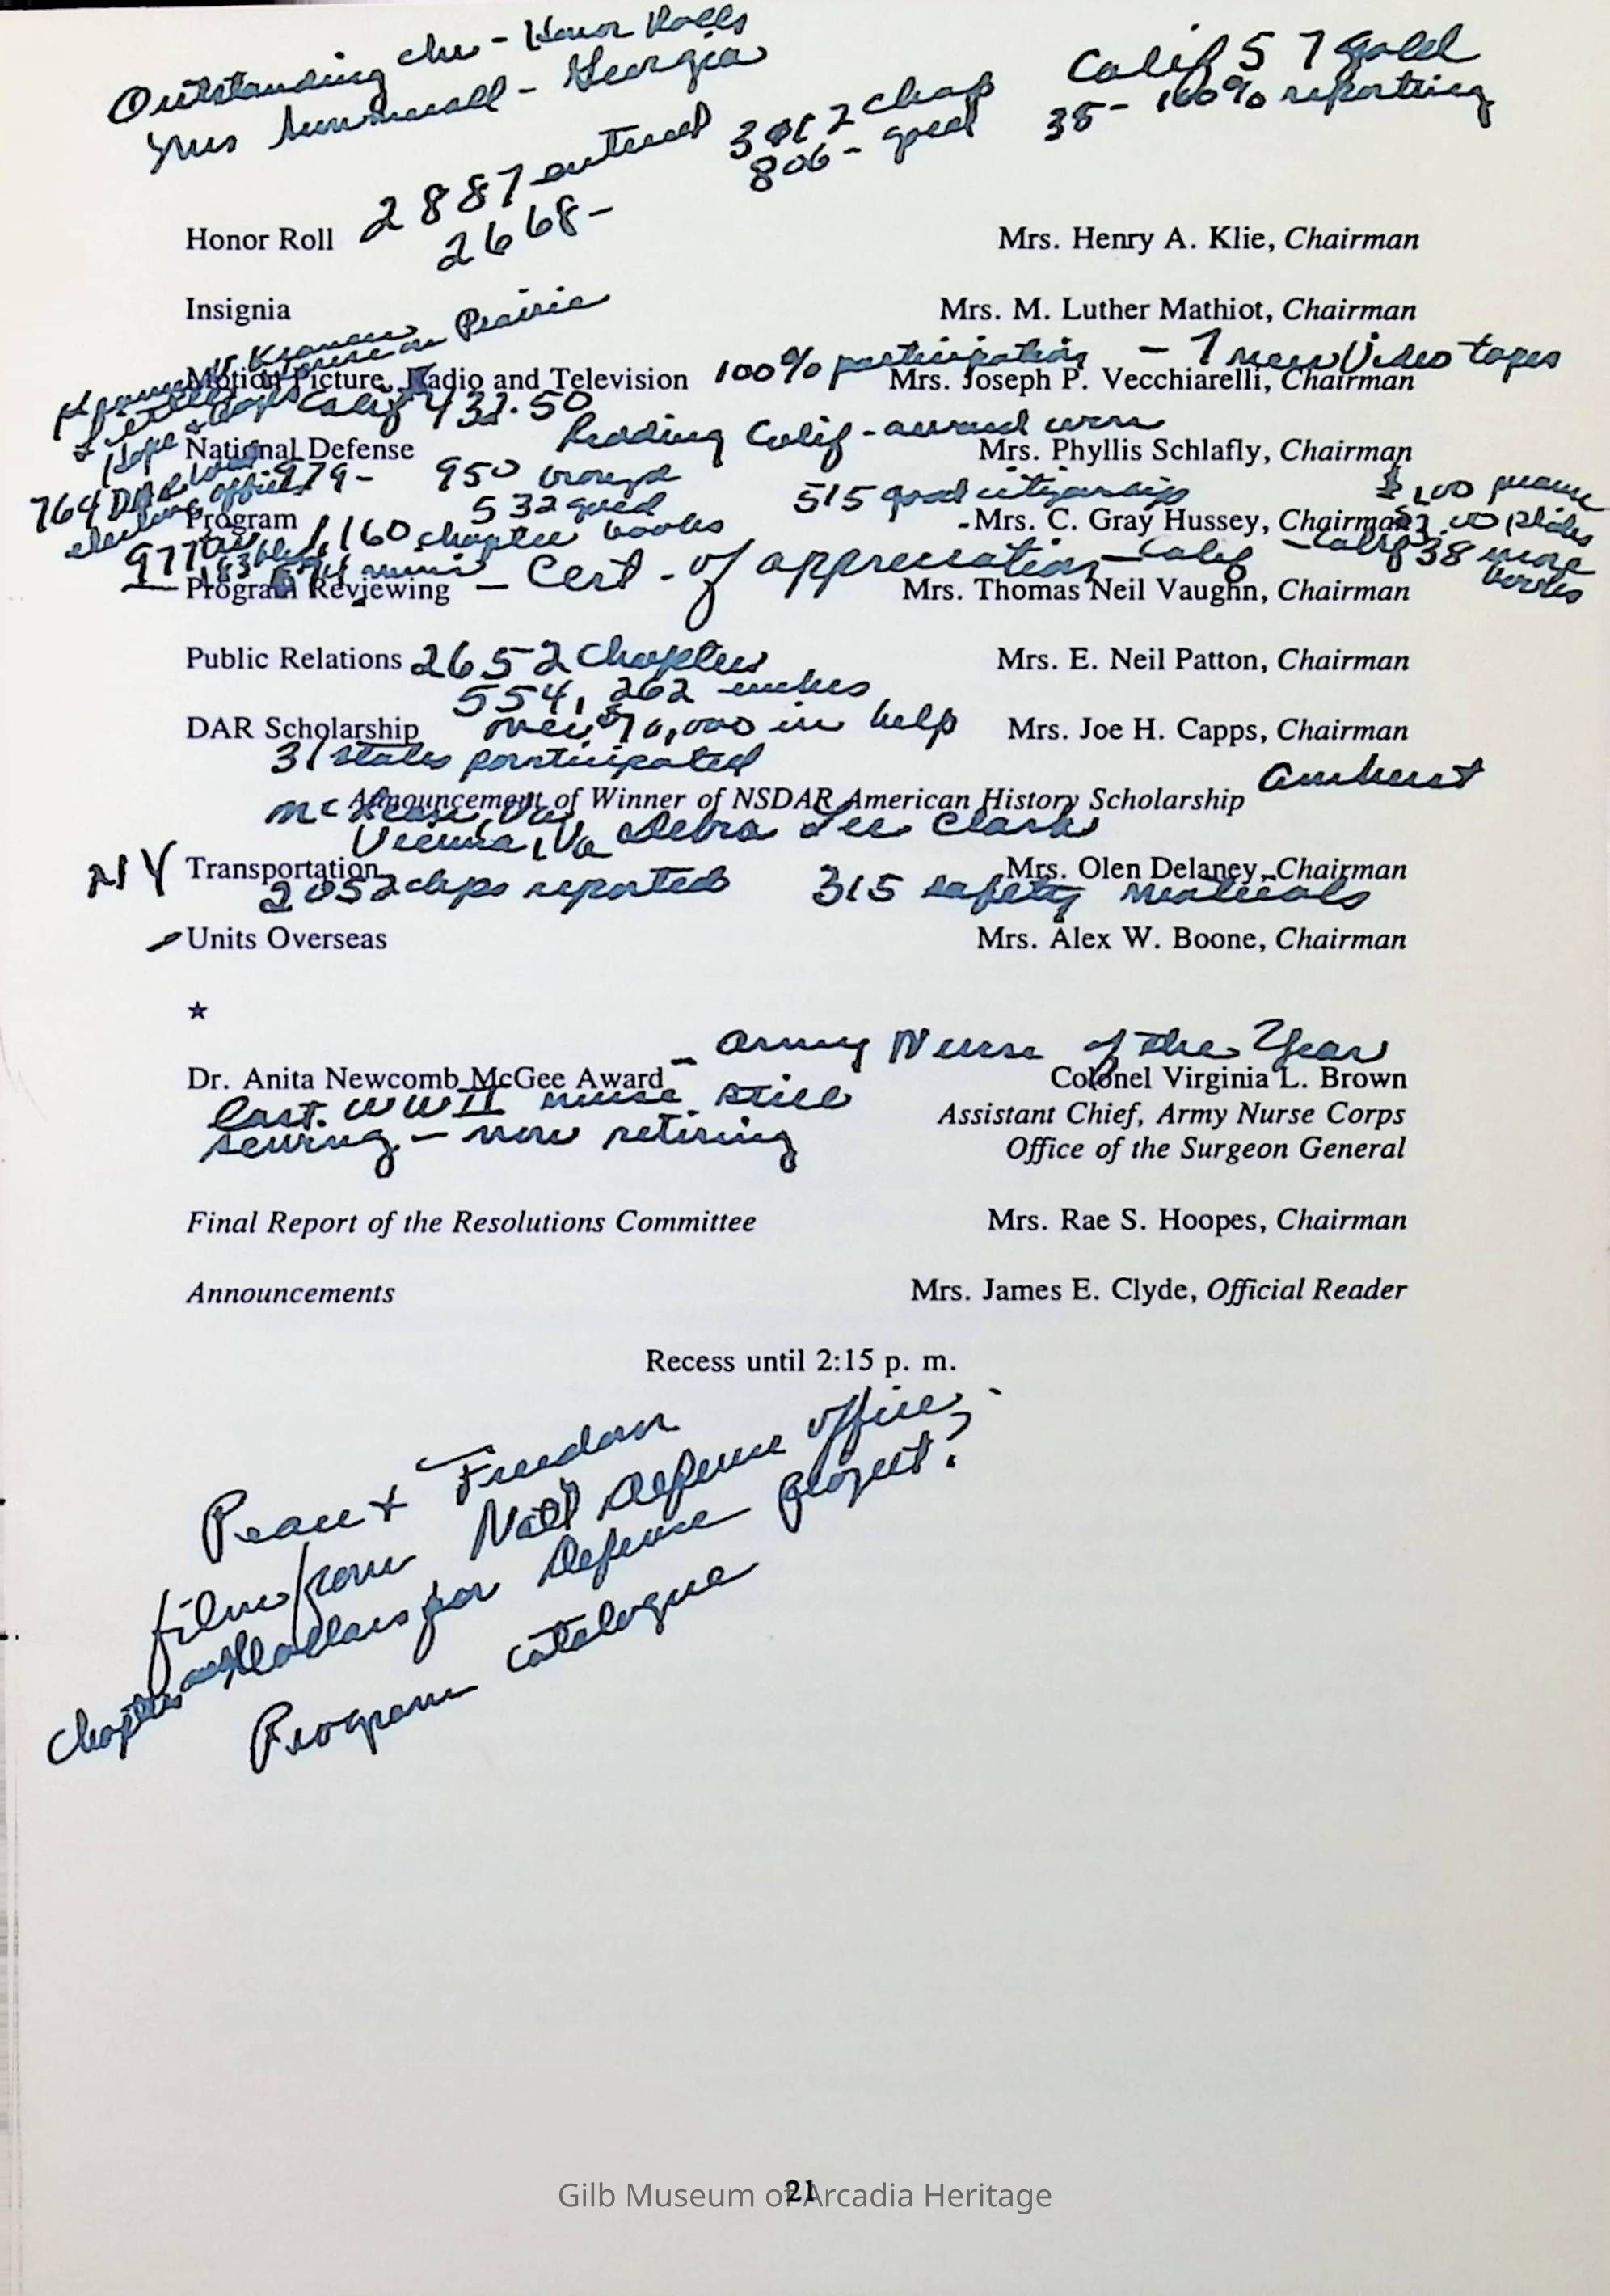 Outstanding chr - Honor Rolls
Mrs - Georgia
Calif 57 gold
38 - 100% reporting
2887 entered
2668 -
chap
806 - gold
Honor Roll Mrs. Henry A. Klie, Chairman
Insignia Mrs. M. Luther Mathiot, Chairman
Prairie
100% participation - 7 new Video tapes
Motion Picture, Radio and Television Mrs. Joseph P. Vecchiarelli, Chairman
Calif 432.50
Redding Calif - award
National Defense Mrs. Phyllis Schlafly, Chairman
764 DAR 979 - 950
532 gued 515 good citizenship $1.00
Program Mrs. C. Gray Hussey, Chairman
977 1,160 chapter books
Calif 38 more books
- Cert. of appreciation - Calif
Program Reviewing Mrs. Thomas Neil Vaughn, Chairman
Public Relations 2652 chapters Mrs. E. Neil Patton, Chairman
554,262 inches
DAR Scholarship over $70,000 in help Mrs. Joe H. Capps, Chairman
31 states participated
Amherst
Announcement of Winner of NSDAR American History Scholarship
McLean, Va
Vienna, Va Debra Lee Clark
NY Transportation Mrs. Olen Delaney, Chairman
2052 chps reported 315 safety materials
Units Overseas Mrs. Alex W. Boone, Chairman
☆
- Army Nurse of the Year
Dr. Anita Newcomb McGee Award Colonel Virginia L. Brown
last WWII nurse still Assistant Chief, Army Nurse Corps
serving - now retiring Office of the Surgeon General
Final Report of the Resolutions Committee Mrs. Rae S. Hoopes, Chairman
Announcements Mrs. James E. Clyde, Official Reader
Recess until 2:15 p. m.
Peace + Freedom
film from Nat'l Defense office
chapter dollars for Defense project?
Program catalogue
21
Gilb Museum of Arcadia Heritage